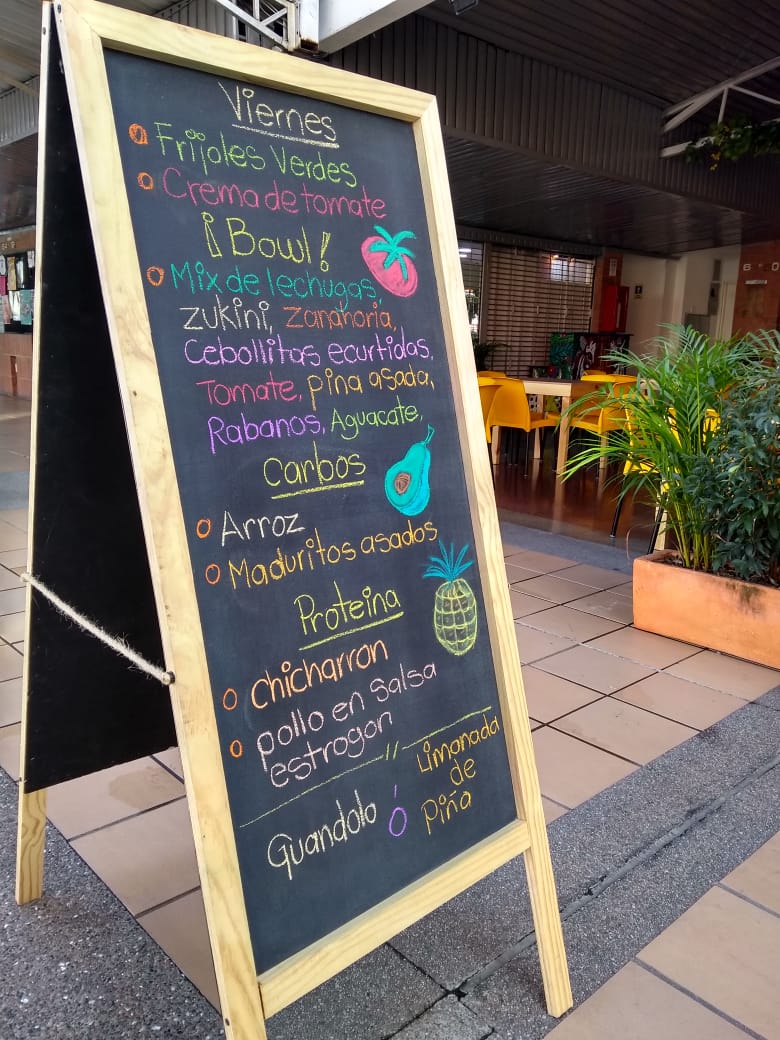 Viernes
Frijoles Verdes
Crema de tomate
¡Bowl!
Mix de lechugas,
zukini, zanahoria,
Cebollitas ecurtidas,
Tomate, pina asada,
Rabanos, Aguacate,
Carbos
Arroz
Maduritos asados
Proteina
chicharron
pollo en salsa
estrogon
Guandolo ó Limonada
de
Piña